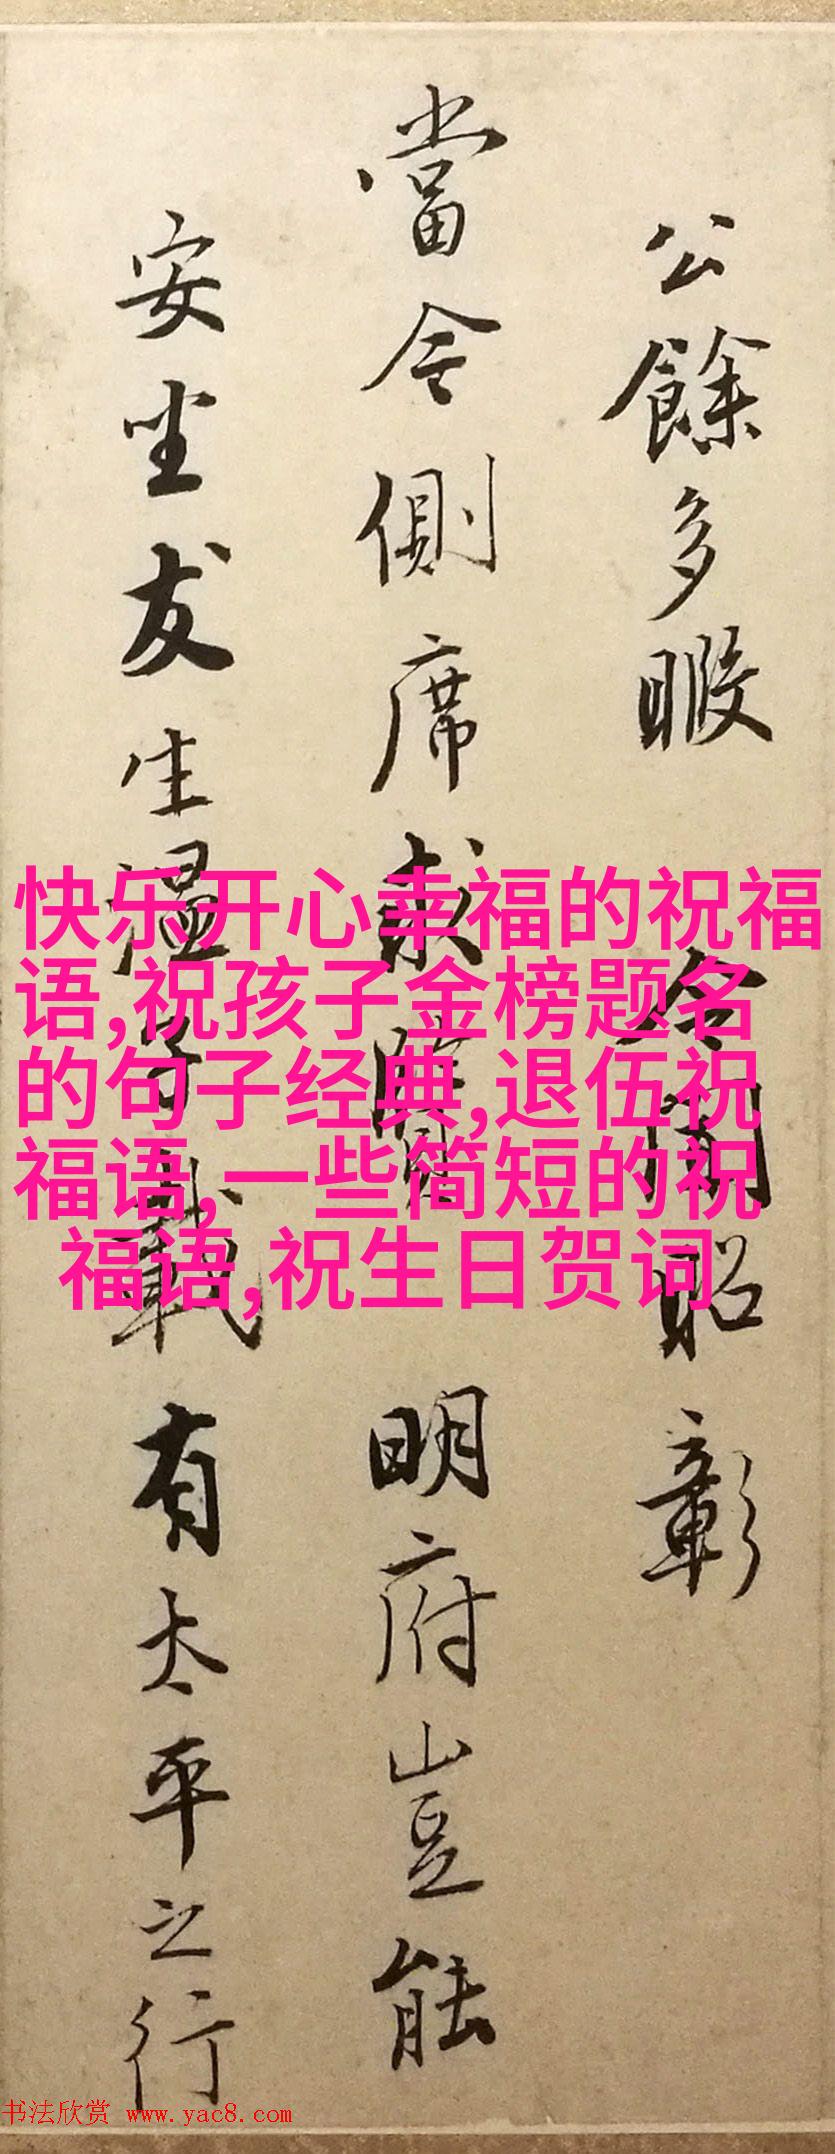 公餘多暇 令聞昭彰
當令側席求賢 明府豈能
安坐友生溫 載有太平之行
快乐开心幸福的祝福
语,祝孩子金榜题名
的句子经典,退伍祝
福语,一些简短的祝
福语,祝生日贺词
书法欣赏 www.yac8.com